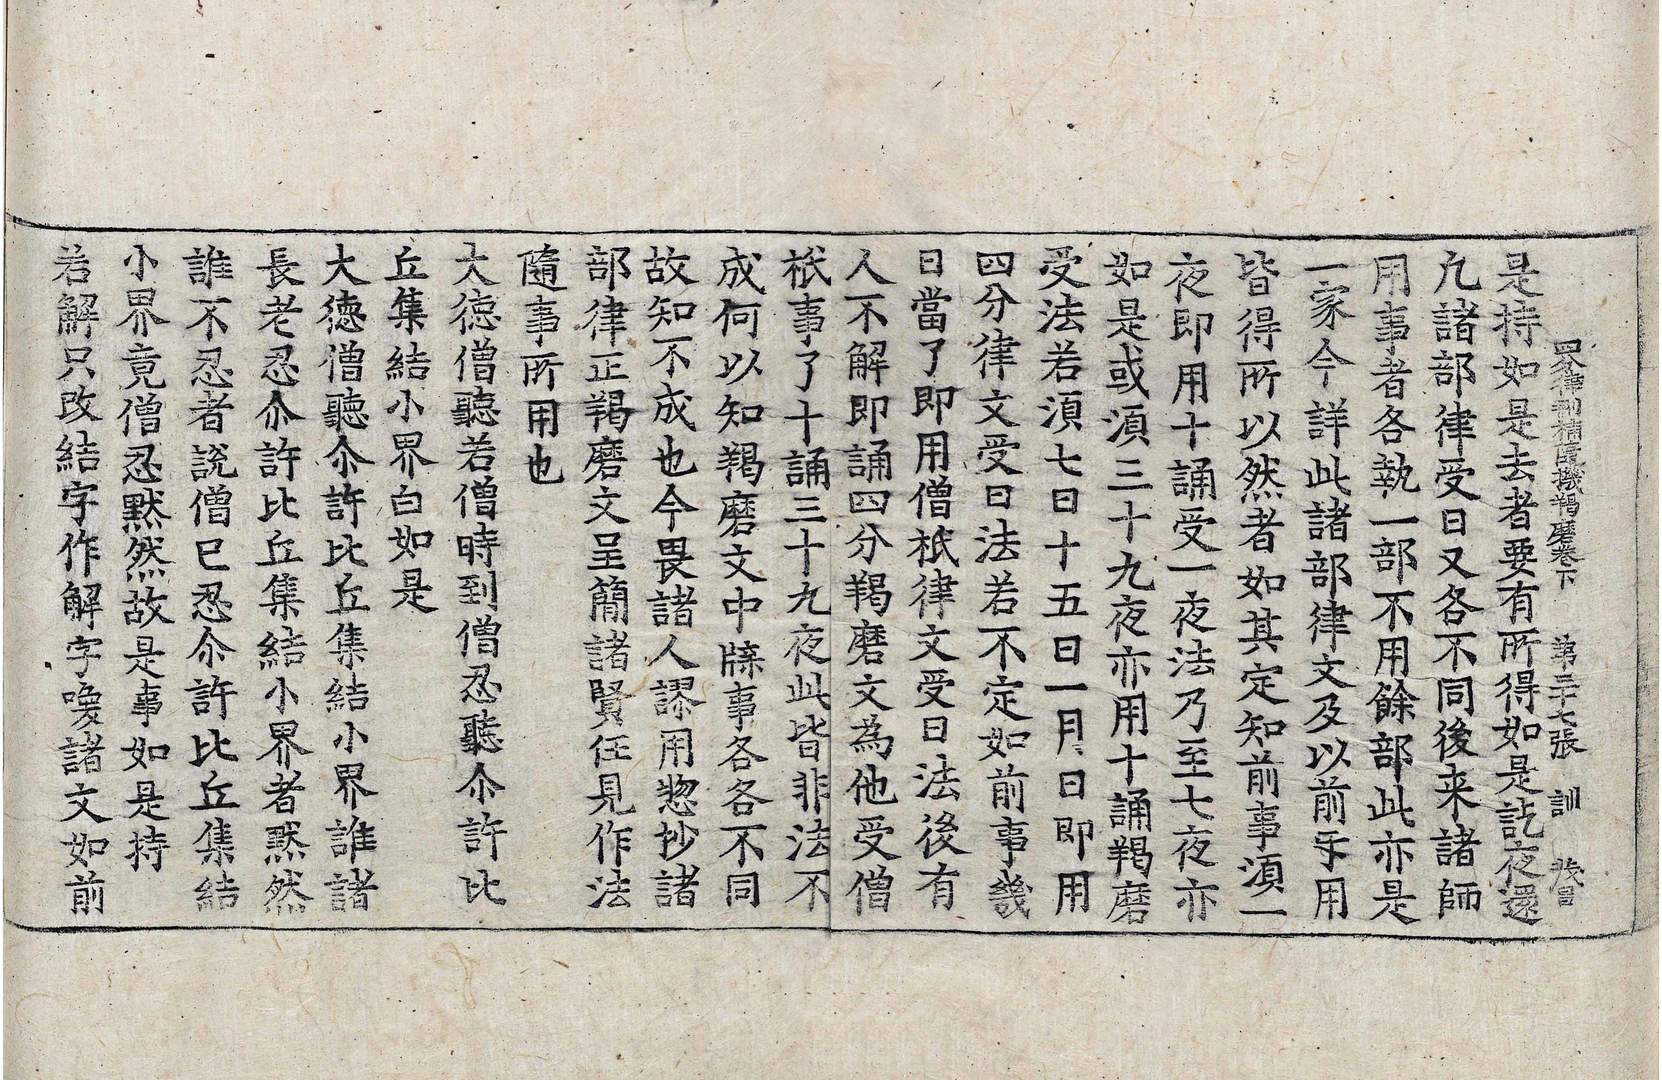 四分律刪補隨機羯磨卷下 第二十七張 訓
是持如是去者要有所得如是訖夜還
凢諸部律受日又各不同後来諸師
用事者各執一部不用餘部此亦是
一家今詳此諸部律文及以前事用
皆得所以然者如其定知前事湏一
夜即用十誦受一夜法乃至七夜亦
如是或湏三十九夜亦用十誦羯磨
受法若湏七日十五日一月日即用
四分律文受日法若不定如前事幾
日當了即用僧祇律文受日法後有
人不解即誦四分羯磨文為他受僧
祇事了十誦三十九夜此皆非法不
成何以知羯磨文中牒事各各不同
故知不成也今畏諸人謬用惣抄諸
部律正羯磨文呈簡諸賢任見作法
隨事所用也
大德僧聽若僧時到僧忍聽尒許比
丘集結小界白如是
大德僧聽尒許比丘集結小界誰諸
長老忍尒許比丘集結小界者黙然
誰不忍者說僧已忍尒許比丘集結
小界竟僧忍黙然故是事如是持
若解只改結字作解字喚諸文如前